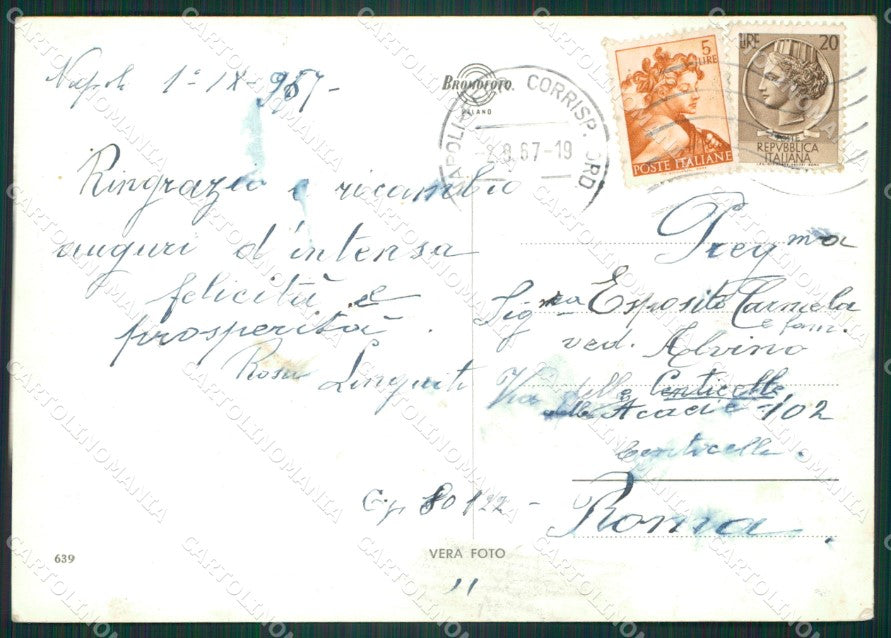 Napoli 1° IX - 967 -
Ringrazio e ricambio
auguri d'intensa
felicità e
prosperità.
Rosa Linguiti
Cap 80122 -
639
BROMOFOTO
MILANO
NAPOLI CORRISP. ORD
2.9.67-19
5 LIRE
POSTE ITALIANE
LIRE 20
REPVBBLICA
ITALIANA
Preg ma
Sig ra Esposito Carmela
e fam.
ved. Alvino
Via delle Centicelle
delle Acacie 102
Centocelle.
Roma.
VERA FOTO
CARTOLINOMANIA